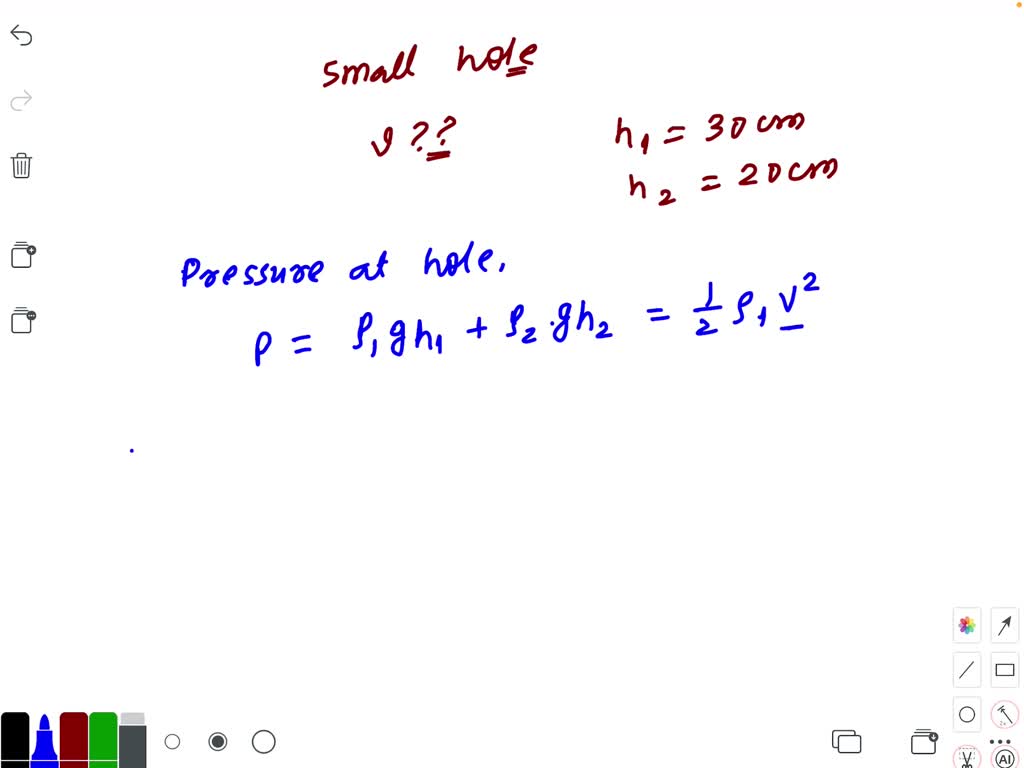 small hole
v ??
h₁ = 30 cm
h₂ = 20 cm
Pressure at hole,
P = ρ₁gh₁ + ρ₂.gh₂ = 1/2 ρ₁ v²
AI